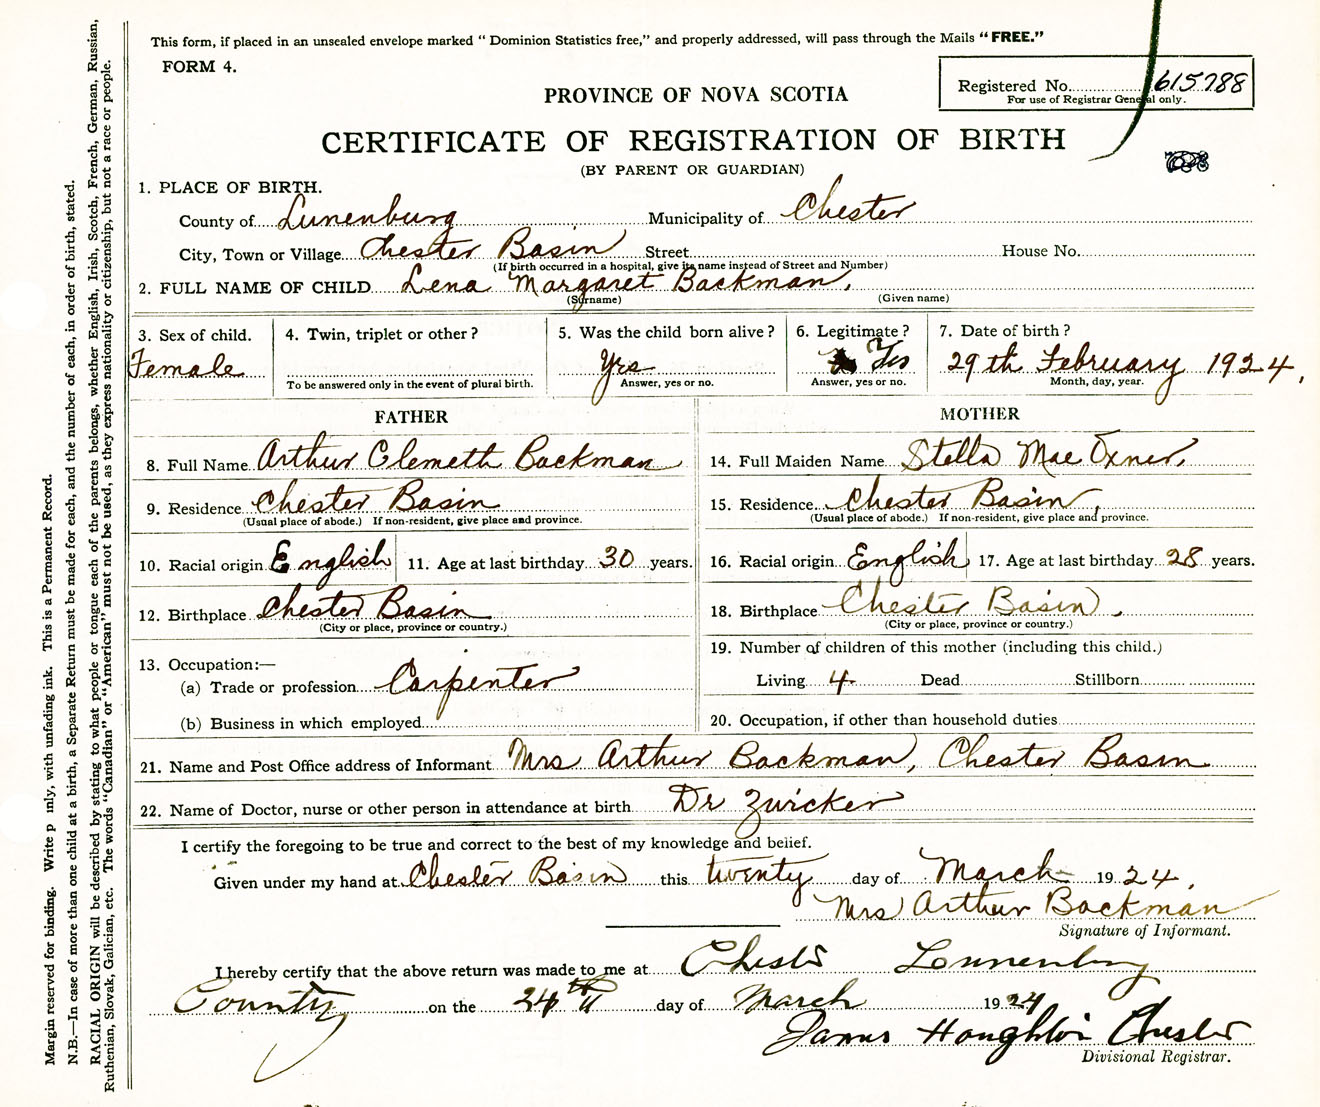 This form, if placed in an unsealed envelope marked "Dominion Statistics free," and properly addressed, will pass through the Mails "FREE."
FORM 4.
Registered No. 615788
For use of Registrar General only.
PROVINCE OF NOVA SCOTIA
CERTIFICATE OF REGISTRATION OF BIRTH
(BY PARENT OR GUARDIAN)
1. PLACE OF BIRTH.
County of Lunenburg Municipality of Chester
City, Town or Village Chester Basin Street House No.
(If birth occurred in a hospital, give its name instead of Street and Number)
2. FULL NAME OF CHILD Lena Margaret Backman,
(Surname) (Given name)
3. Sex of child. 4. Twin, triplet or other? 5. Was the child born alive? 6. Legitimate? 7. Date of birth?
Female Yes Yes 29th February 1924,
To be answered only in the event of plural birth. Answer, yes or no. Answer, yes or no. Month, day, year.
FATHER MOTHER
8. Full Name Arthur Clemeth Backman 14. Full Maiden Name Stella Mae Oxner,
9. Residence Chester Basin 15. Residence Chester Basin,
(Usual place of abode.) If non-resident, give place and province. (Usual place of abode.) If non-resident, give place and province.
10. Racial origin English 11. Age at last birthday 30 years. 16. Racial origin English 17. Age at last birthday 28 years.
12. Birthplace Chester Basin 18. Birthplace Chester Basin,
(City or place, province or country.) (City or place, province or country.)
13. Occupation:— 19. Number of children of this mother (including this child.)
(a) Trade or profession Carpenter Living 4 Dead Stillborn
(b) Business in which employed 20. Occupation, if other than household duties
21. Name and Post Office address of Informant Mrs Arthur Backman, Chester Basin
22. Name of Doctor, nurse or other person in attendance at birth Dr Zwicker
I certify the foregoing to be true and correct to the best of my knowledge and belief.
Given under my hand at Chester Basin this twenty day of March 1924.
Mrs Arthur Backman
Signature of Informant.
I hereby certify that the above return was made to me at Chester Lunenburg
County on the 24th day of March 1924
James Houghton Chester
Divisional Registrar.
Margin reserved for binding. Write p nly, with unfading ink. This is a Permanent Record.
N.B.—In case of more than one child at a birth, a Separate Return must be made for each, and the number of each, in order of birth, stated.
RACIAL ORIGIN will be described by stating to what people or tongue each of the parents belongs, whether English, Irish, Scotch, French, German, Russian,
Ruthenian, Slovak, Galician, etc. The words "Canadian" or "American" must not be used, as they express nationality or citizenship, but not a race or people.